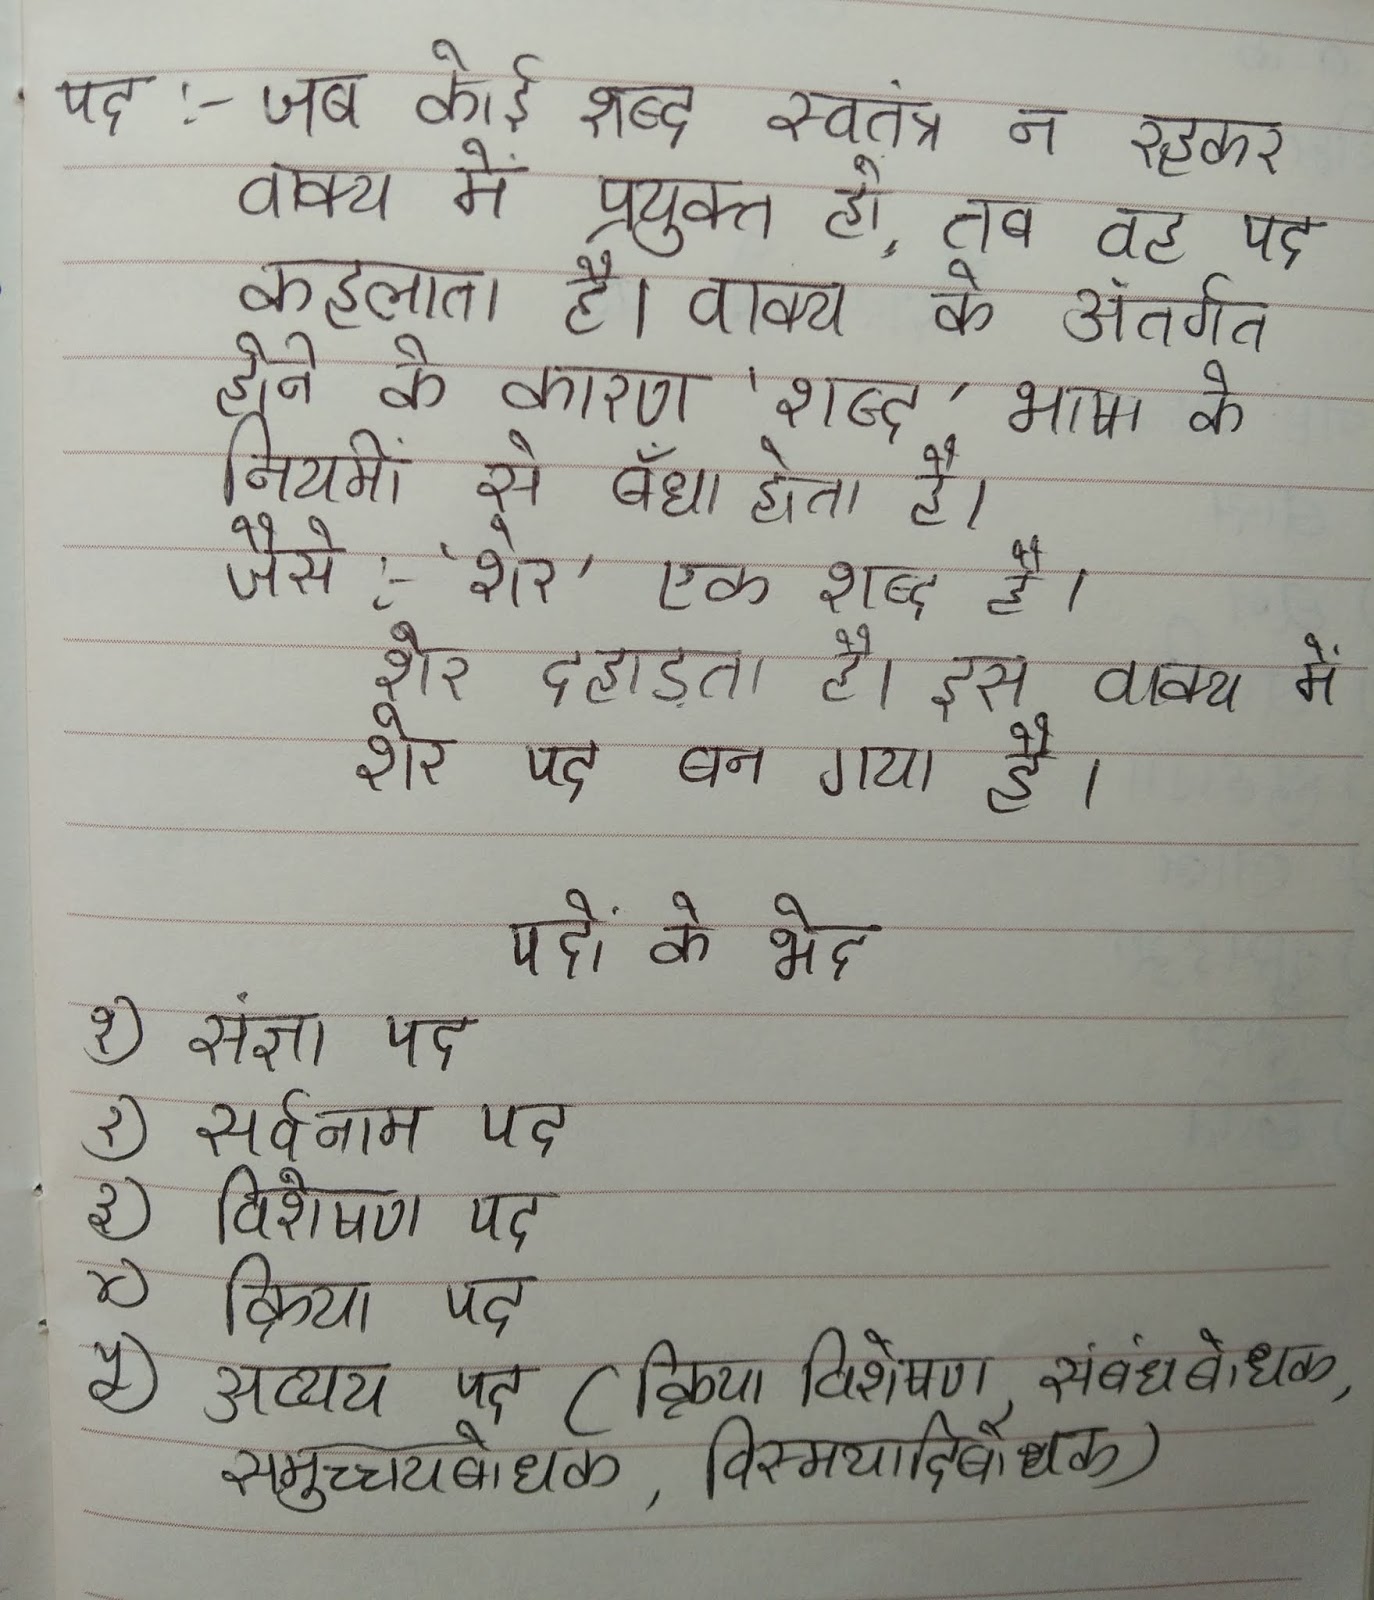 पद :- जब कोई शब्द स्वतंत्र न रहकर
वाक्य में प्रयुक्त हो, तब वह पद
कहलाता है। वाक्य के अंतर्गत
होने के कारण 'शब्द' भाषा के
नियमों से बँधा होता है।
जैसे :- 'शेर' एक शब्द है।
शेर दहाड़ता है। इस वाक्य में
शेर पद बन गया है।
पदों के भेद
१) संज्ञा पद
२) सर्वनाम पद
३) विशेषण पद
४) क्रिया पद
५) अव्यय पद (क्रिया विशेषण, संबंधबोधक,
समुच्चयबोधक, विस्मयादिबोधक)